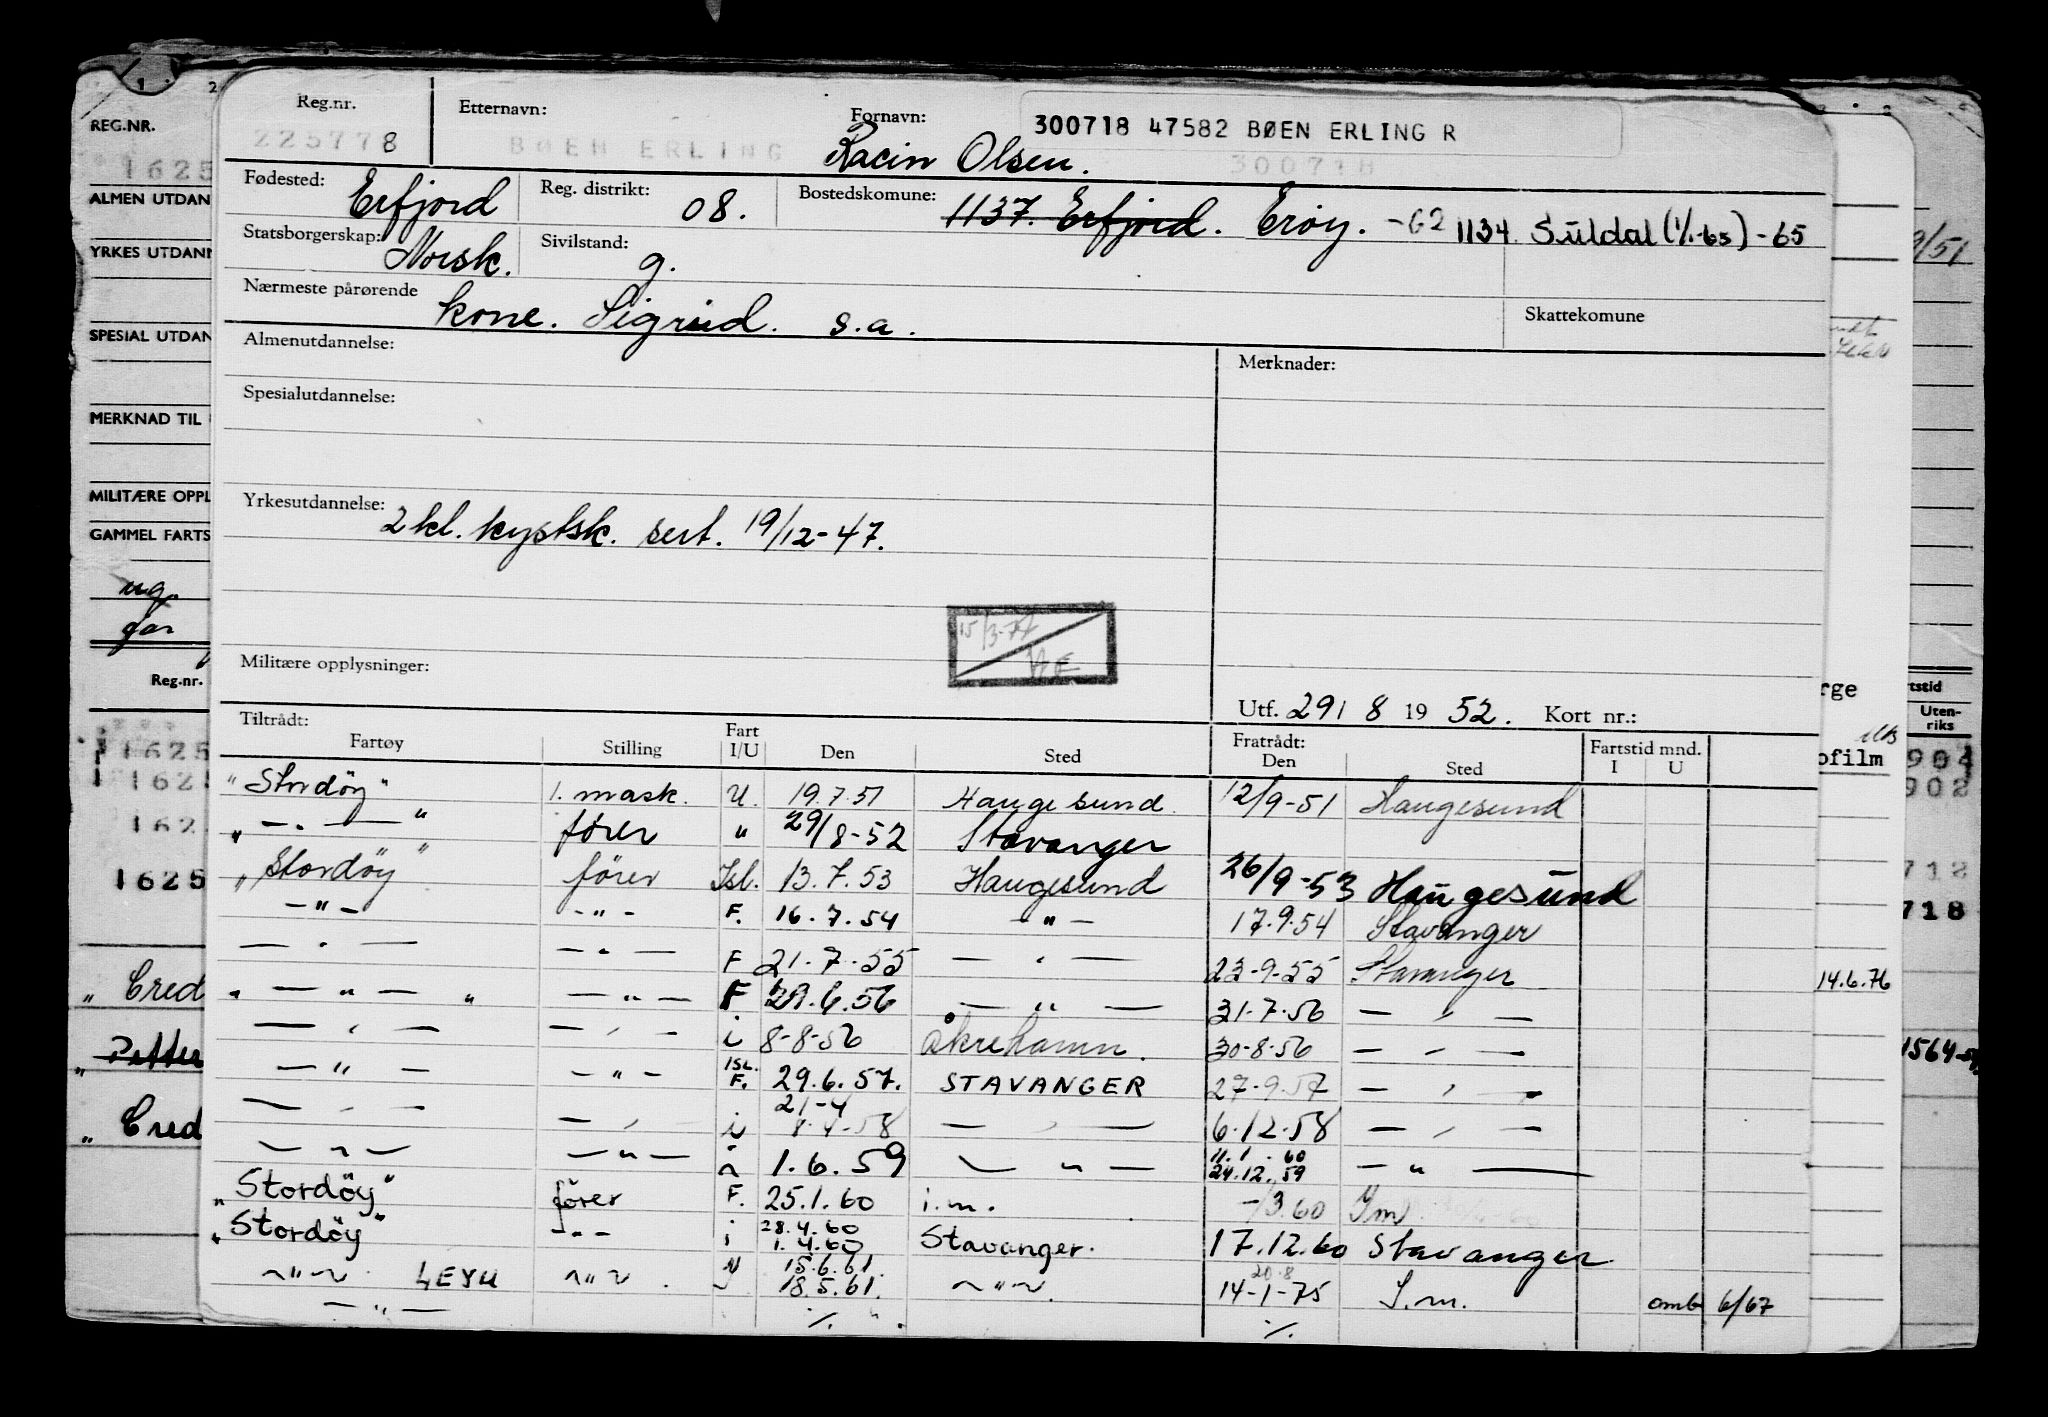 1 2
REG.NR.
1625
ALMEN UTDAN
YRKES UTDANN
SPESIAL UTDAN
MERKNAD TIL
MILITÆRE OPPL
GAMMEL FARTS
Reg.nr.
1625
1625
162
1625
" Cred
" Petter
" Cred
Reg.nr. Etternavn: Fornavn: 300718 47582 BØEN ERLING R
225778 BØEN ERLING Racin Olsen. 300718
Fødested: Erfjord Reg. distrikt: 08. Bostedskomune: 1137. Erfjord. Erøy. -62 1134 Suldal (1/1-65) -65
Statsborgerskap: Norsk. Sivilstand: g.
Nærmeste pårørende kone. Sigrid. s.a. Skattekomune
Almenutdannelse: Merknader:
Spesialutdannelse:
Yrkesutdannelse: 2kl. kystsk. sert. 19/12-47.
15/3-77
Militære opplysninger:
Utf. 29/ 8 19 52. Kort nr.:
Tiltrådt: Fart Fratrådt: Fartstid mnd.
Fartøy Stilling I/U Den Sted Den Sted I U
"Stordöy" 1. mask. U. 19.7.51 Haugesund. 12/9-51 Haugesund
" — . — " förer " 29/8-52 Stavanger
"Stordöy" förer Isl. 13.7.53 Haugesund 26/9-53 Haugesund
— " — - " - F. 16.7.54 — " — 17.9.54 Stavanger
— " — — " — F 21.7.55 — " — 23-9-55 Stavanger
" — " — " — " — F 29.6.56 — " — 31-7-56 — " —
— " — — " — i 8-8-56 Åkrehamn. 30-8-56 — " —
— " — - " - ISL. F. 29.6.57. STAVANGER 27-9.57 — " —
— " — — " — i 21-4 8-4-58 — " — 6.12.58 — " —
— " — — " — 1.6.59 — " — 11.1.60 24.12.59 — " —
"Stordöy" förer F. 25.1.60 i.m. -/3.60 Im
"Stordöy" - " - i 28.4.60 1.4.60 Stavanger. 17.12.60 Stavanger
— " — LEYU — " — 15.6.61. 18.5.61. — " — 20.8 14-1-75 I.m. omb 6/67
— " — ./. " ./.
9/51
rge
ofilm
rtstid
Uten-
riks
904
902
712
718
14.6.76
1564-5